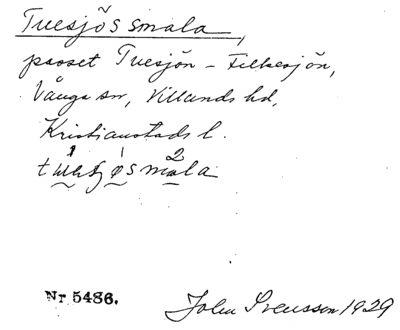 Tuesjös smala,
passet Tuesjön - Filkesjön,
Vånga sn, Villands hd,
Kristianstads l.
Nr 5486.
John Svensson 1929